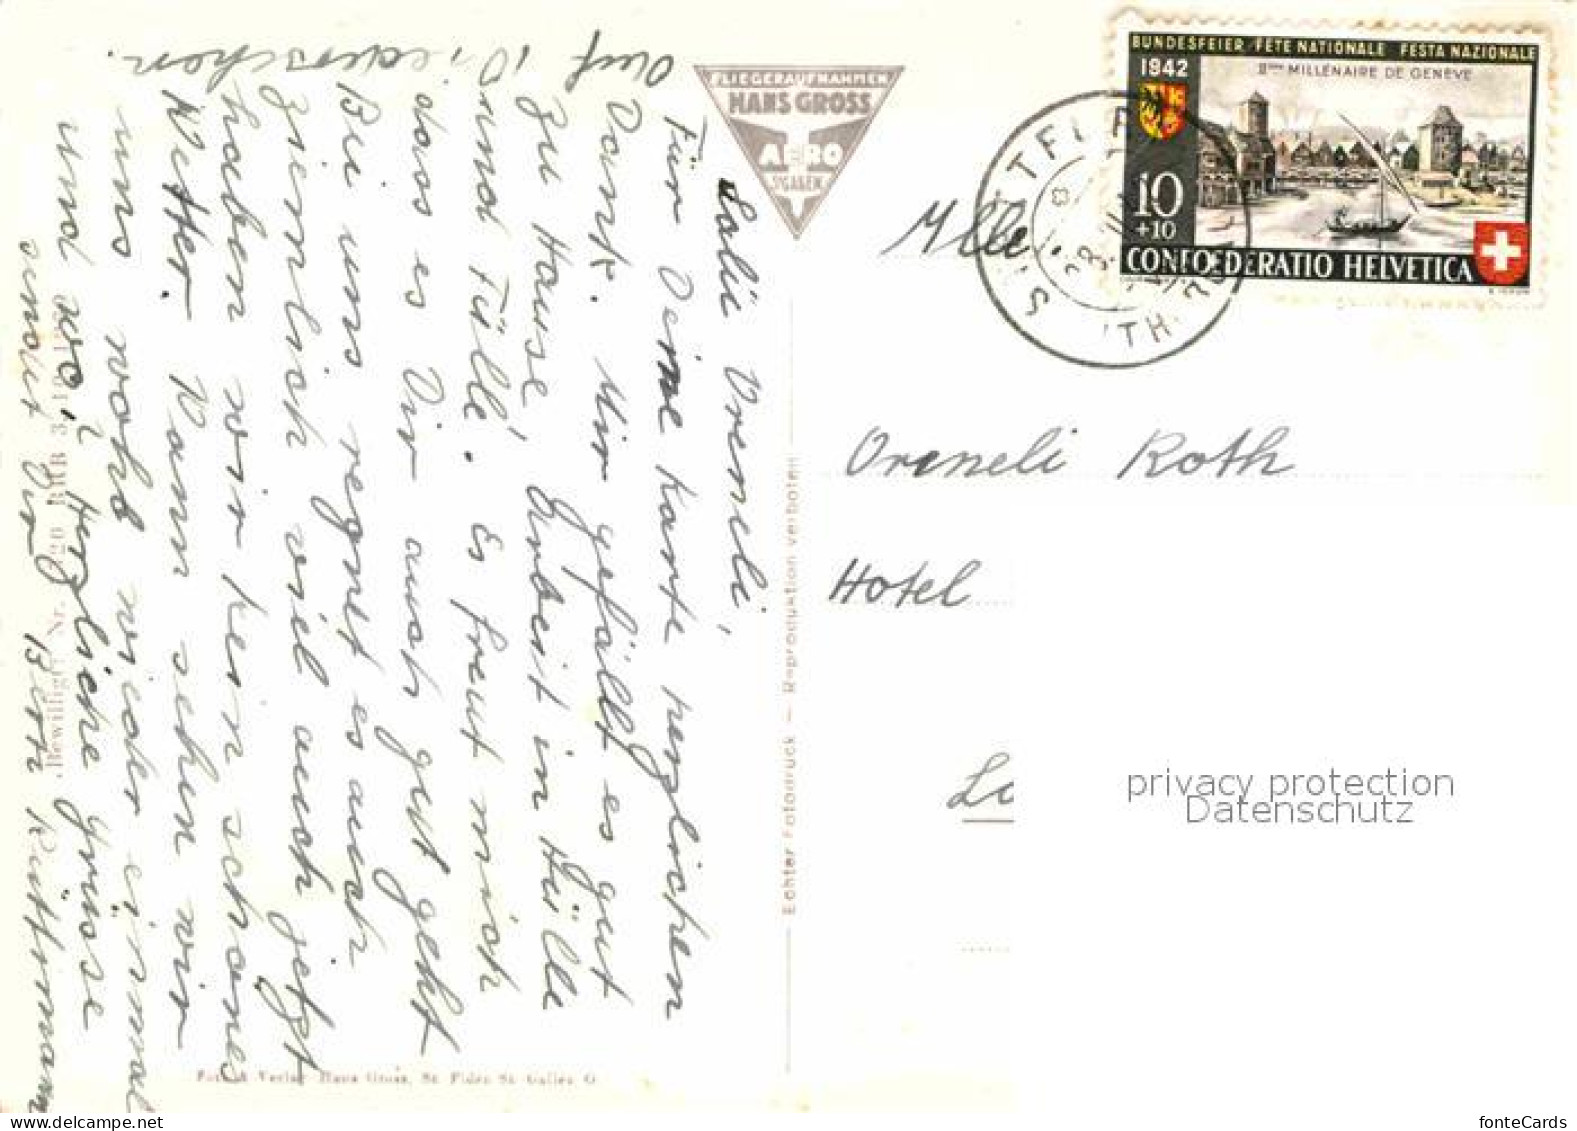 Salü Vreneli,
Für Deine Karte herzlichen
Dank. Mir gefällt es gut
zu Hause, Arbeit in Hülle
und Fülle. Es freut mich
dass es Dir auch gut geht
Bei uns regnet es auch
ziemlich viel auch jetzt
haben wir kein schönes
Wetter. Wann sehen wir
uns wohl wieder einmal
und wo? Herzliche Grüsse
sendet Dir Berti Rüttimann
Auf Wiedersehen.
FLIEGERAUFNAHMEN
HANS GROSS
AERO
ST. GALLEN
Echter Fotodruck — Reproduktion verboten
Foto & Verlag Hans Gross, St. Fiden St. Gallen O.
Bewilligt Nr. 20 BRB 3.10.
BUNDESFEIER FÊTE NATIONALE FESTA NAZIONALE
1942
IIème MILLÉNAIRE DE GENÈVE
10
+10
CONFOEDERATIO HELVETICA
Mlle
Vreneli Roth
Hotel
privacy protection
Datenschutz
fonteCards